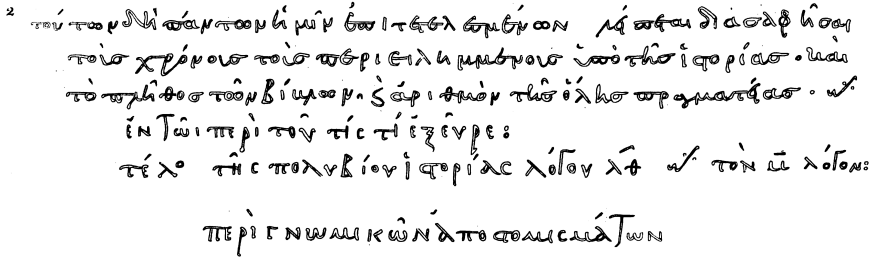 2
τούτων δὴ πάντων ἡμῖν ἐπιτετελεσμένων λείπεται διασαφῆσαι
τοὺς χρόνους τοὺς περιειλημμένους ὑπὸ τῆς ἱστορίας · καὶ
τὸ πλῆθος τῶν βίβλων · ϗ ἀριθμὸν τῆς ὅλης πραγματείας ·
ἐν τῶι περὶ τοῦ τίς τί ἐξεῦρε :
τέλο τῆς πολυβίου ἱστορίας λόγου λθ τὸν μ λόγον :
περὶ γνωμικῶν ἀποστομισμάτων